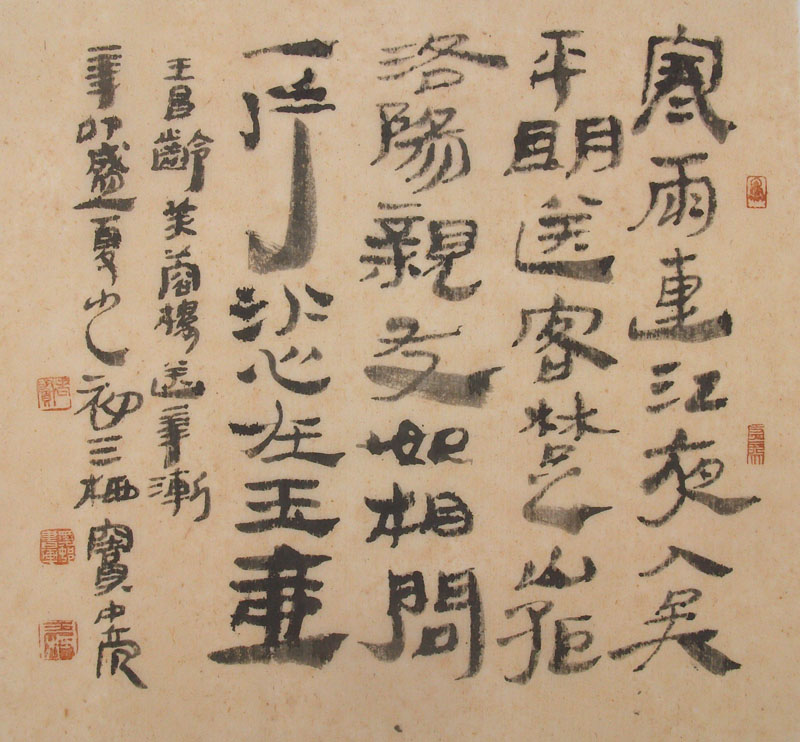 寒雨連江夜入吳
平明送客楚山孤
洛陽親友如相問
一片冰心在玉壺
王昌齡芙蓉樓送辛漸
辛卯盛夏初三栖